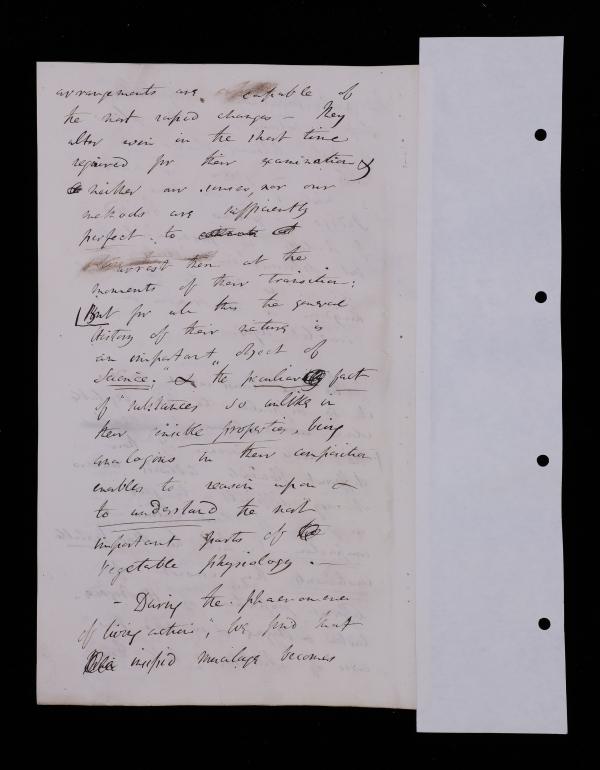 arrangements are capable of
the most rapid changes – They
alter even in the short time
required for their examination &
neither our senses, nor our
methods are sufficiently
perfect to
arrest them at the
moments of their transition:
But for all this the general
history of their nature is
an important object of
Science; & the peculiar fact
of substances so unlike in
their visible properties, being
analogous in their composition
enables to reason upon &
to understand the most
important parts of
vegetable physiology. –
– During the phaenomena
of living action, we find that
insipid mucilage becomes